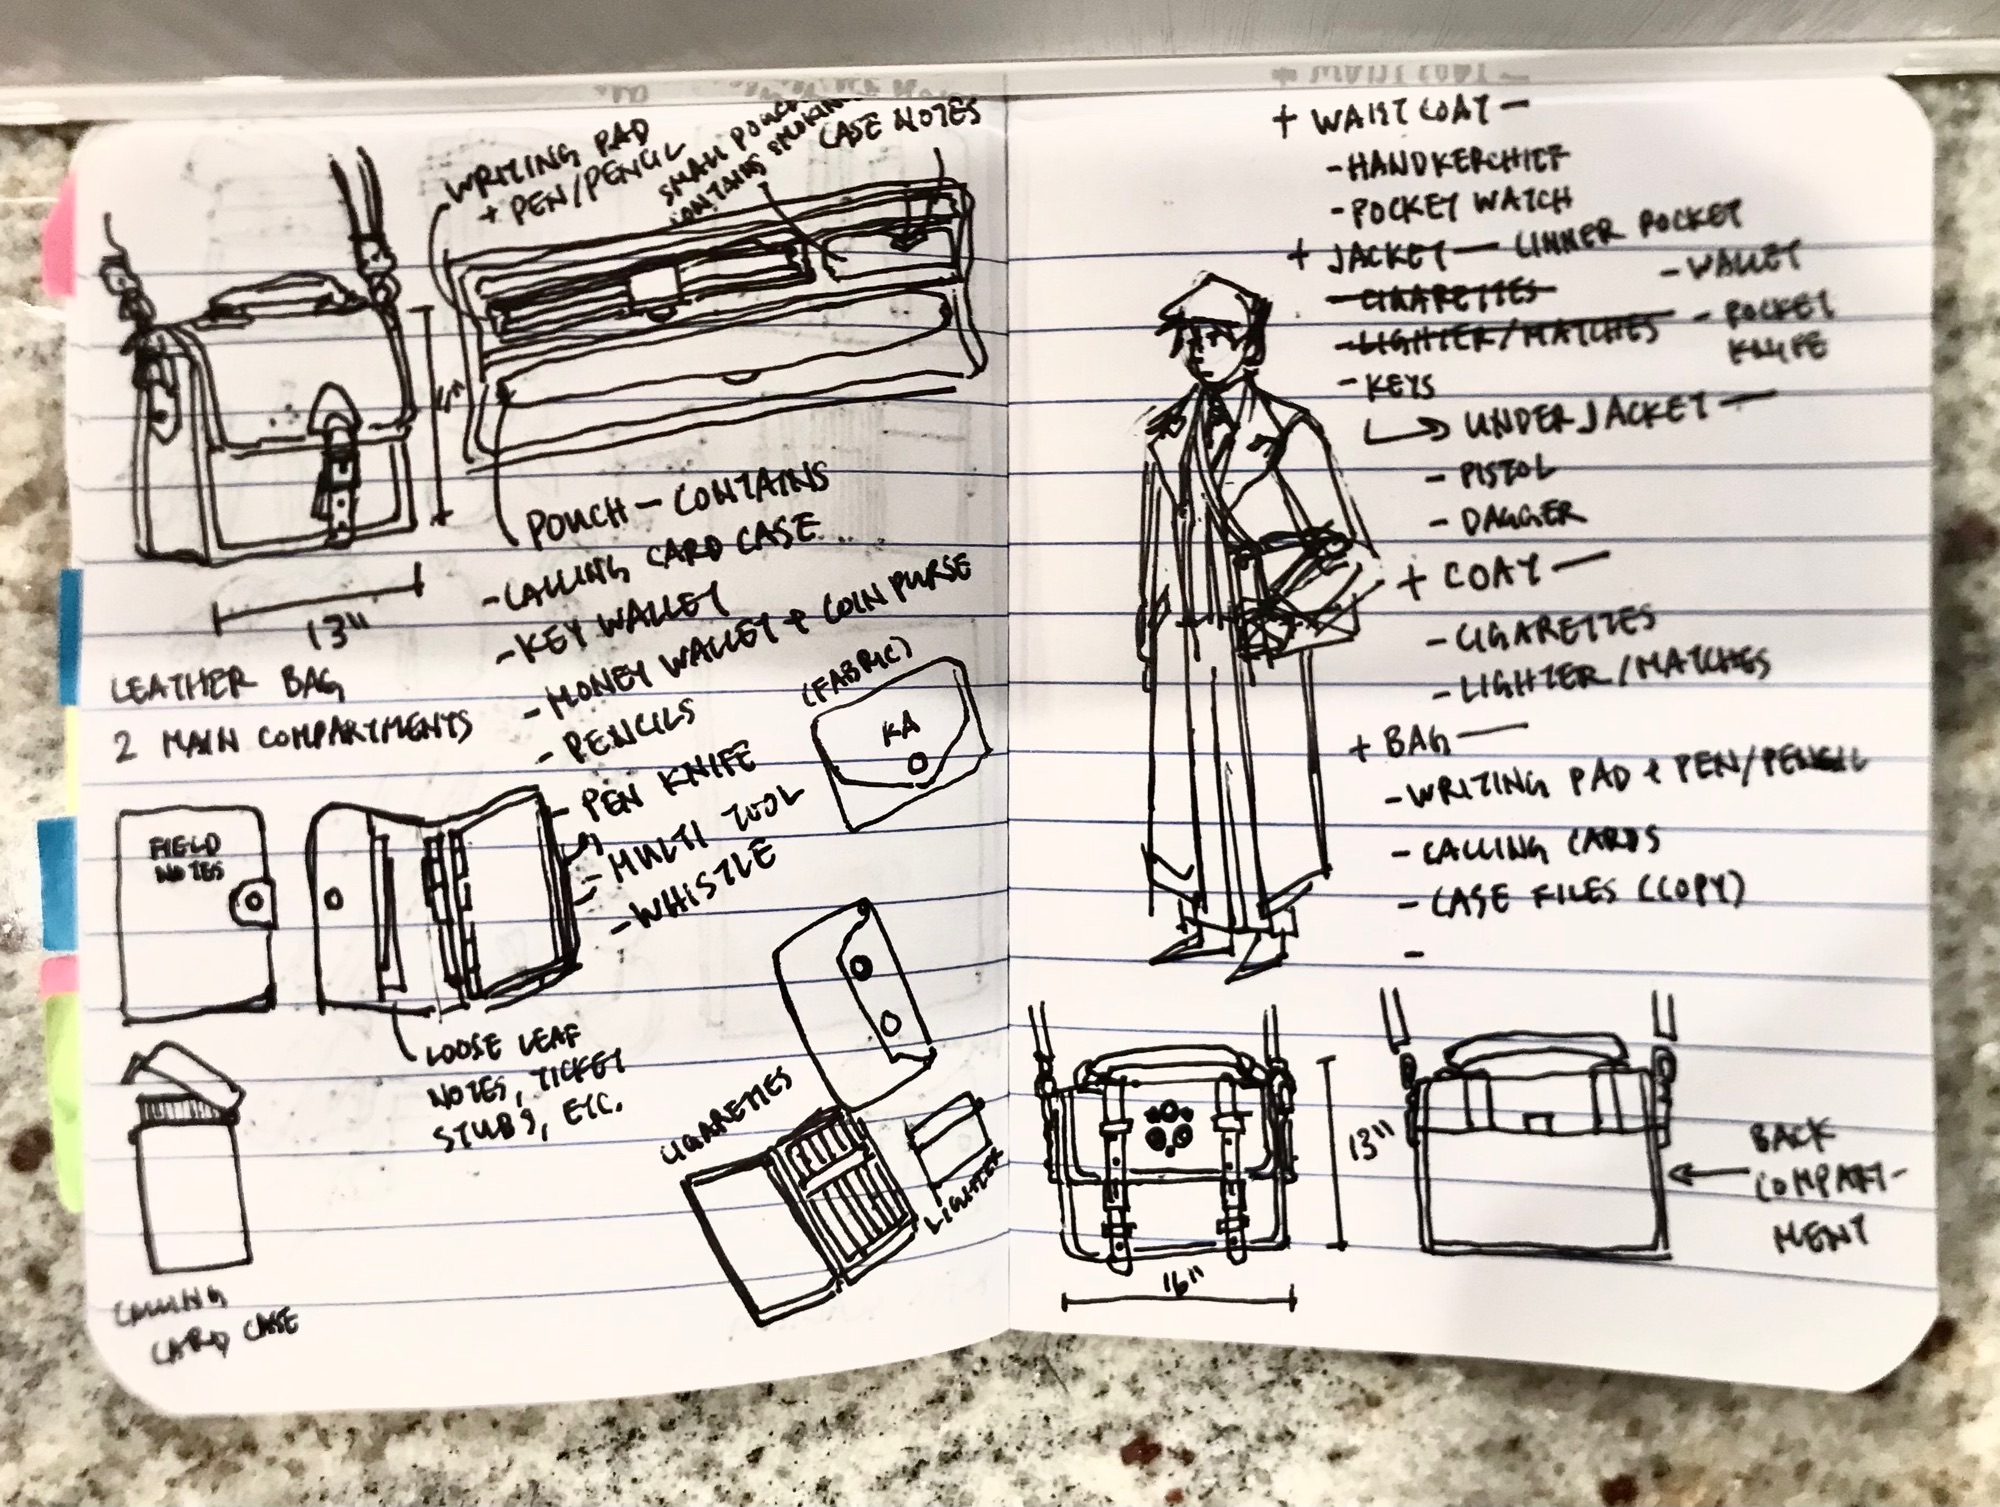 WRITING PAD
+ PEN/PENCIL
SMALL POUCH
CONTAINS SMOKING
CASE NOTES
13"
LEATHER BAG
2 MAIN COMPARTMENTS
POUCH — CONTAINS
- CALLING CARD CASE
- KEY WALLET
- MONEY WALLET + COIN PURSE
- PENCILS
- PEN KNIFE
- MULTI TOOL
- WHISTLE
(FABRIC)
KA
FIELD
NOTES
LOOSE LEAF
NOTES, TICKET
STUBS, ETC.
CALLING
CARD CASE
CIGARETTES
LIGHTER
+ WAIST COAT —
- HANDKERCHIEF
- POCKET WATCH
+ JACKET — INNER POCKET
- WALLET
- CIGARETTES
- LIGHTER/MATCHES
- POCKET
KNIFE
- KEYS
UNDER JACKET —
- PISTOL
- DAGGER
+ COAT —
- CIGARETTES
- LIGHTER/MATCHES
+ BAG —
- WRITING PAD + PEN/PENCIL
- CALLING CARDS
- CASE FILES (COPY)
-
13"
16"
BACK
COMPART-
MENT